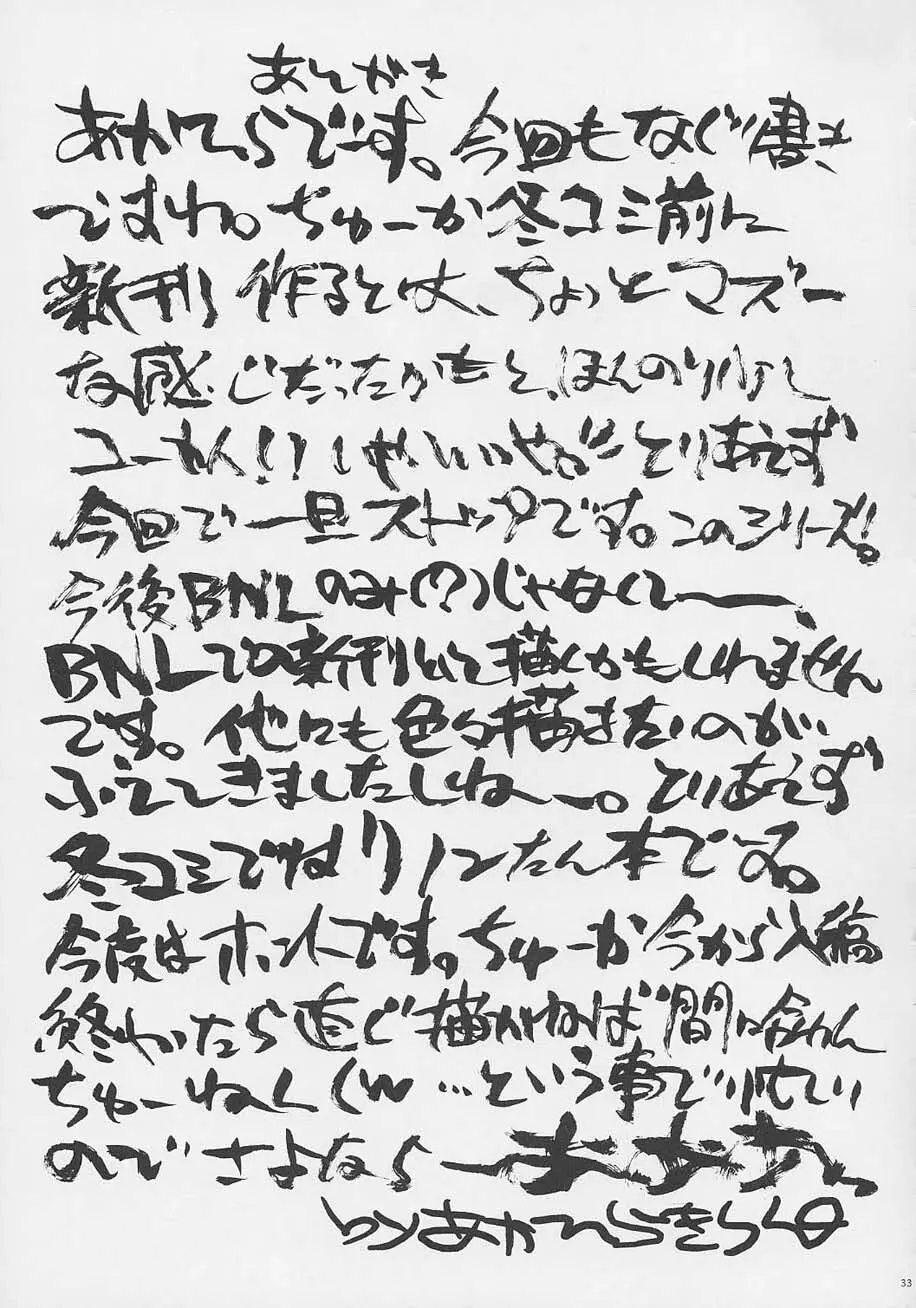 あとがき
あかてんらでーす。今回もなぐり書き
ですね。ちゅーか冬コミ前に
新刊作るとは、ちょっとマズー
な感じだったかもと、ほんのり
しゃーんいやびー とりあえず
今回で一旦ストップです。このシリーズ!。
今後BNLのみ(?)じゃなくてー、
BNLでの新刊として描くかもしれません
です。他にも色々描きたいのが
ふえてきましたしねー。とりあえず
冬コミではリノンたん本でーす。
今度はホントです。ちゅーか今から入稿
終わったら直ぐ描かねば間に合わん
ちゅーねん(w …という事で忙しい
のでさよならー
33